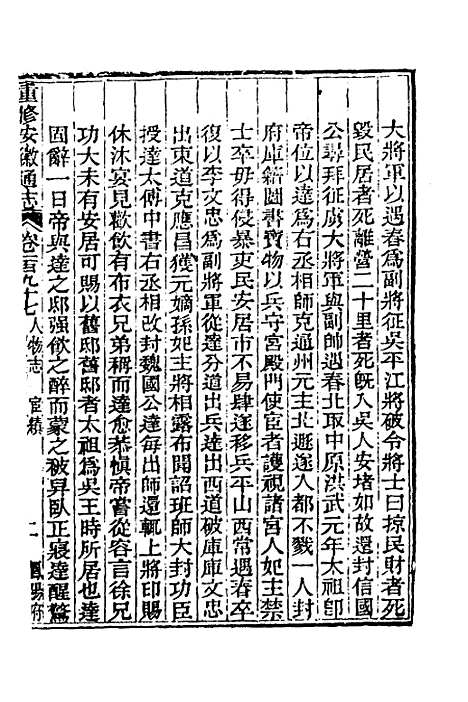 大將軍以遇春爲副將征吳平江將破令將士曰掠民財者死
毀民居者死離營二十里者死旣入吳人安堵如故還封信國
公尋拜征虜大將軍與副帥遇春北取中原洪武元年太祖卽
帝位以達爲右丞相師克通州元主北遯遂入都不戮一人封
府庫籍圖書寶物以兵守宮殿門使宦者護視諸宮人妃主禁
士卒毋得侵暴吏民安居市不易肆遂移兵平山西常遇春卒
復以李文忠爲副將軍從達分道出兵達出西道破庫庫文忠
出東道克應昌獲元嫡孫妃主將相露布聞詔班師大封功臣
授達太傅中書右丞相改封魏國公達每出師還輒上將印賜
休沐宴見歡飲有布衣兄弟稱而達愈恭愼帝嘗從容言徐兄
功大未有安居可賜以舊邸舊邸者太祖爲吳王時所居也達
固辭一日帝與達之邸強飲之醉而蒙之被舁臥正寢達醒驚
重修安徽通志 卷二百九十七 人物志 宦績 二 鳳陽府